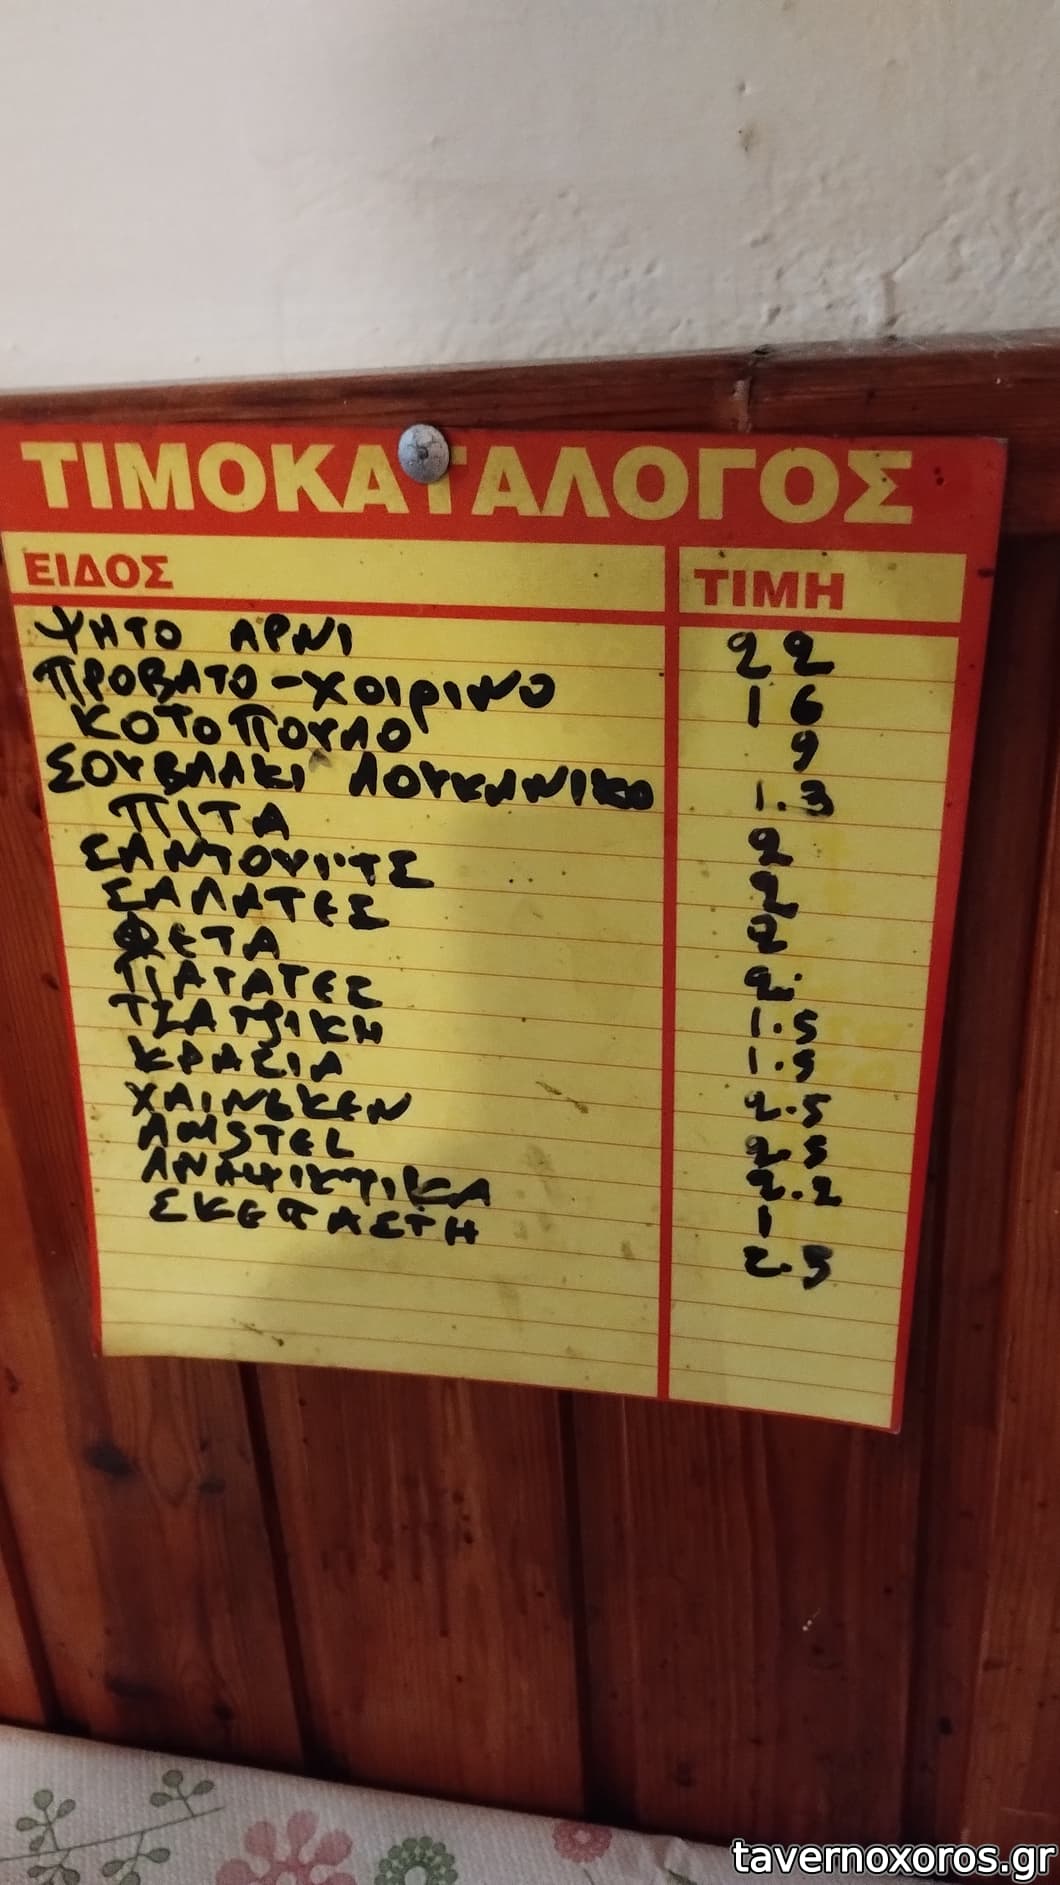 ΤΙΜΟΚΑΤΑΛΟΓΟΣ
ΕΙΔΟΣ ΤΙΜΗ
ΨΗΤΟ ΑΡΝΙ 22
ΠΡΟΒΑΤΟ-ΧΟΙΡΙΝΟ 16
ΚΟΤΟΠΟΥΛΟ 9
ΣΟΥΒΛΑΚΙ ΛΟΥΚΑΝΙΚΟ 1.3
ΠΙΤΑ 2
ΣΑΝΤΟΥΙΤΣ 2
ΣΑΛΑΤΕΣ 2
ΦΕΤΑ 2.
ΠΑΤΑΤΕΣ 1.5
ΤΖΑΤΖΙΚΗ 1.5
ΚΡΑΣΙΑ 2.5
ΧΑΙΝΕΚΕΝ 2.5
AMSTEL 2.2
ΑΝΑΨΙΚΤΙΚΑ 1
ΣΚΕΠΑΣΤΗ 2.5
tavernoxoros.gr